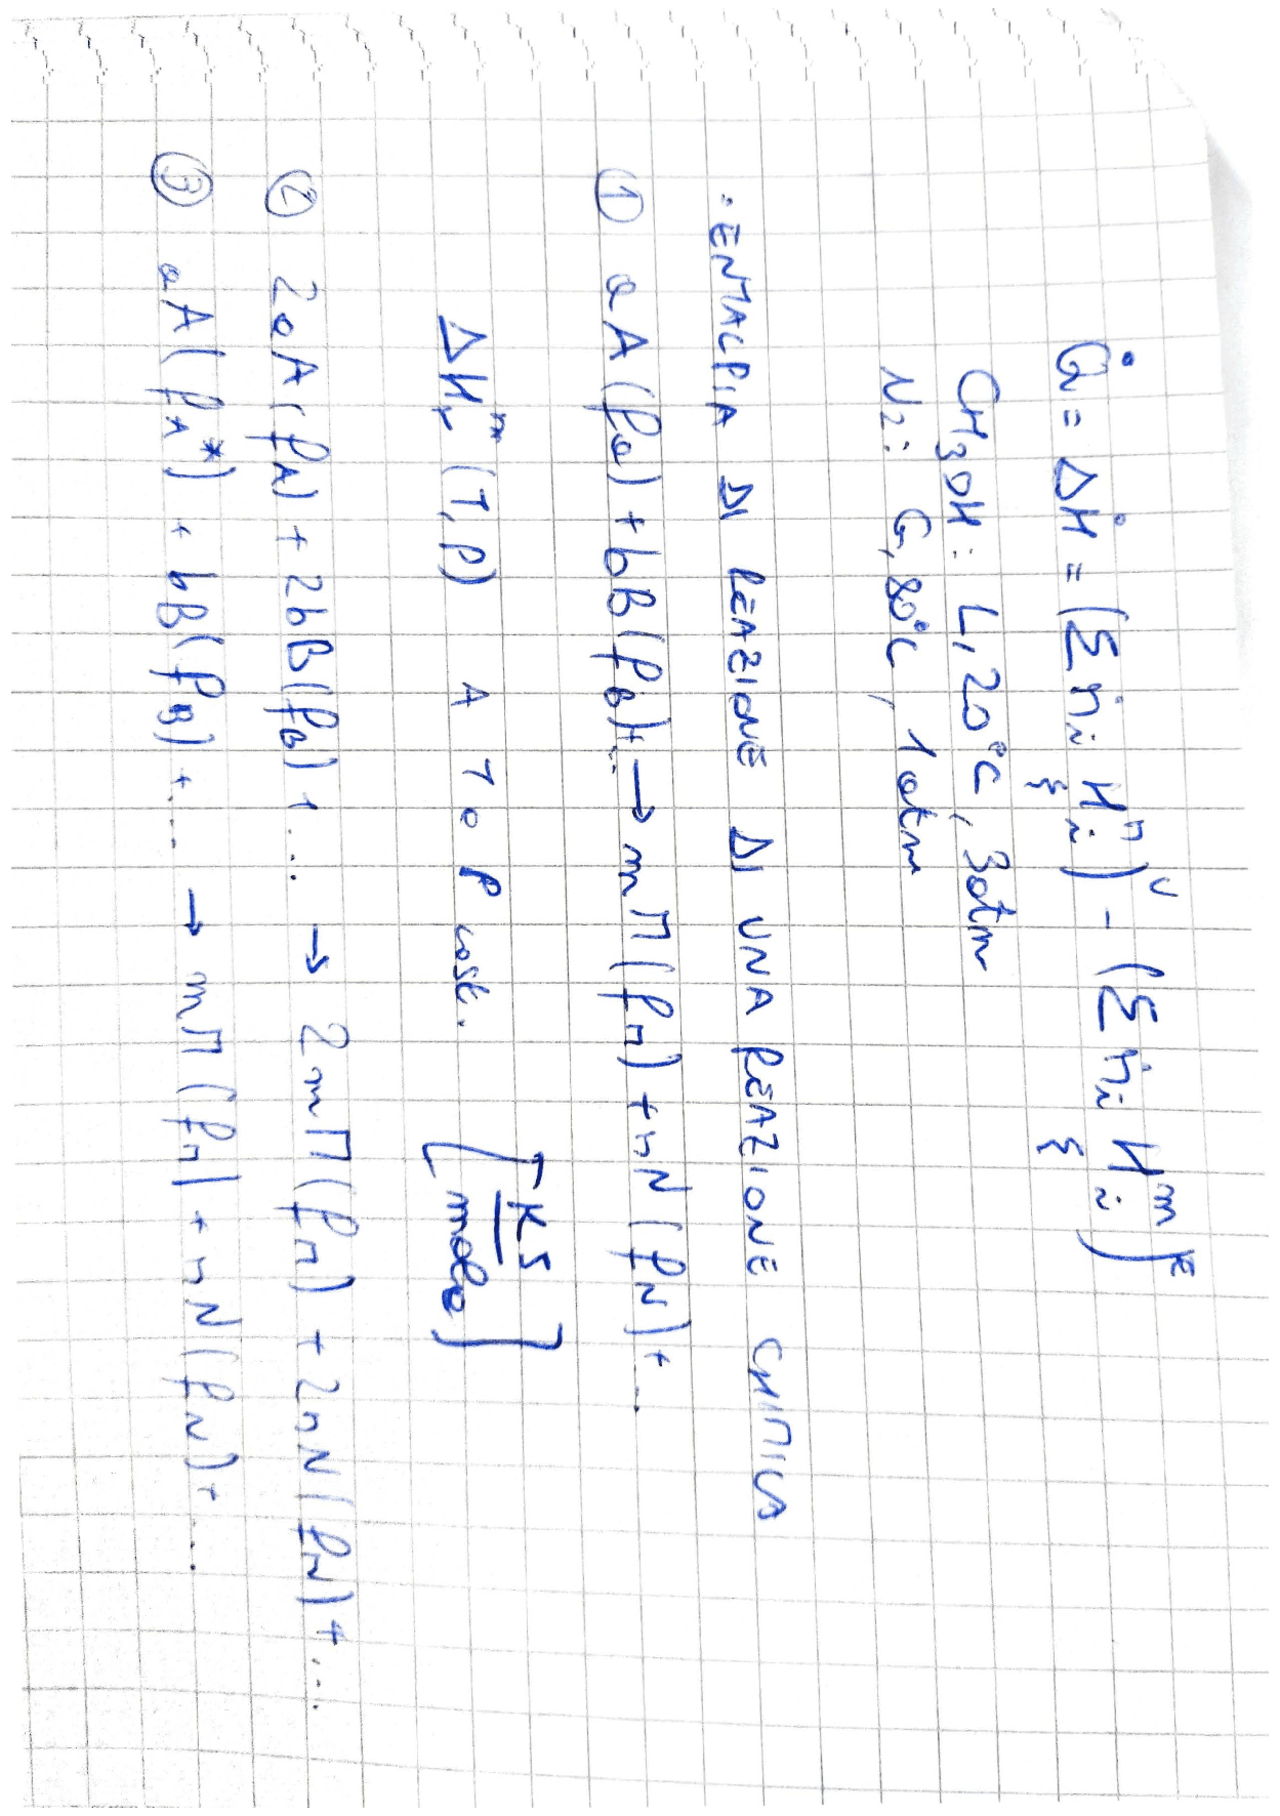 Q̇ = ΔḢ = (Σᵢ ṅᵢ Hᵢᵐ)ᵁ - (Σᵢ ṅᵢ Hᵢᵐ)ᴱ
CH3OH: L, 20°C, 3atm
N2: G, 80°C, 1atm
· ENTALPIA DI REAZIONE DI UNA REAZIONE CHIMICA
① aA(fa) + bB(fB)+... → mM(fM) + nN(fN) + ...
ΔHrᵐ (T, P) A T o P cost. [KJ/mole]
② 2aA(fA) + 2bB(fB) + ... → 2mM(fM) + 2nN(fN) + ...
③ aA(fA*) + bB(fB) + ... → mM(fM) + nN(fN) + ...